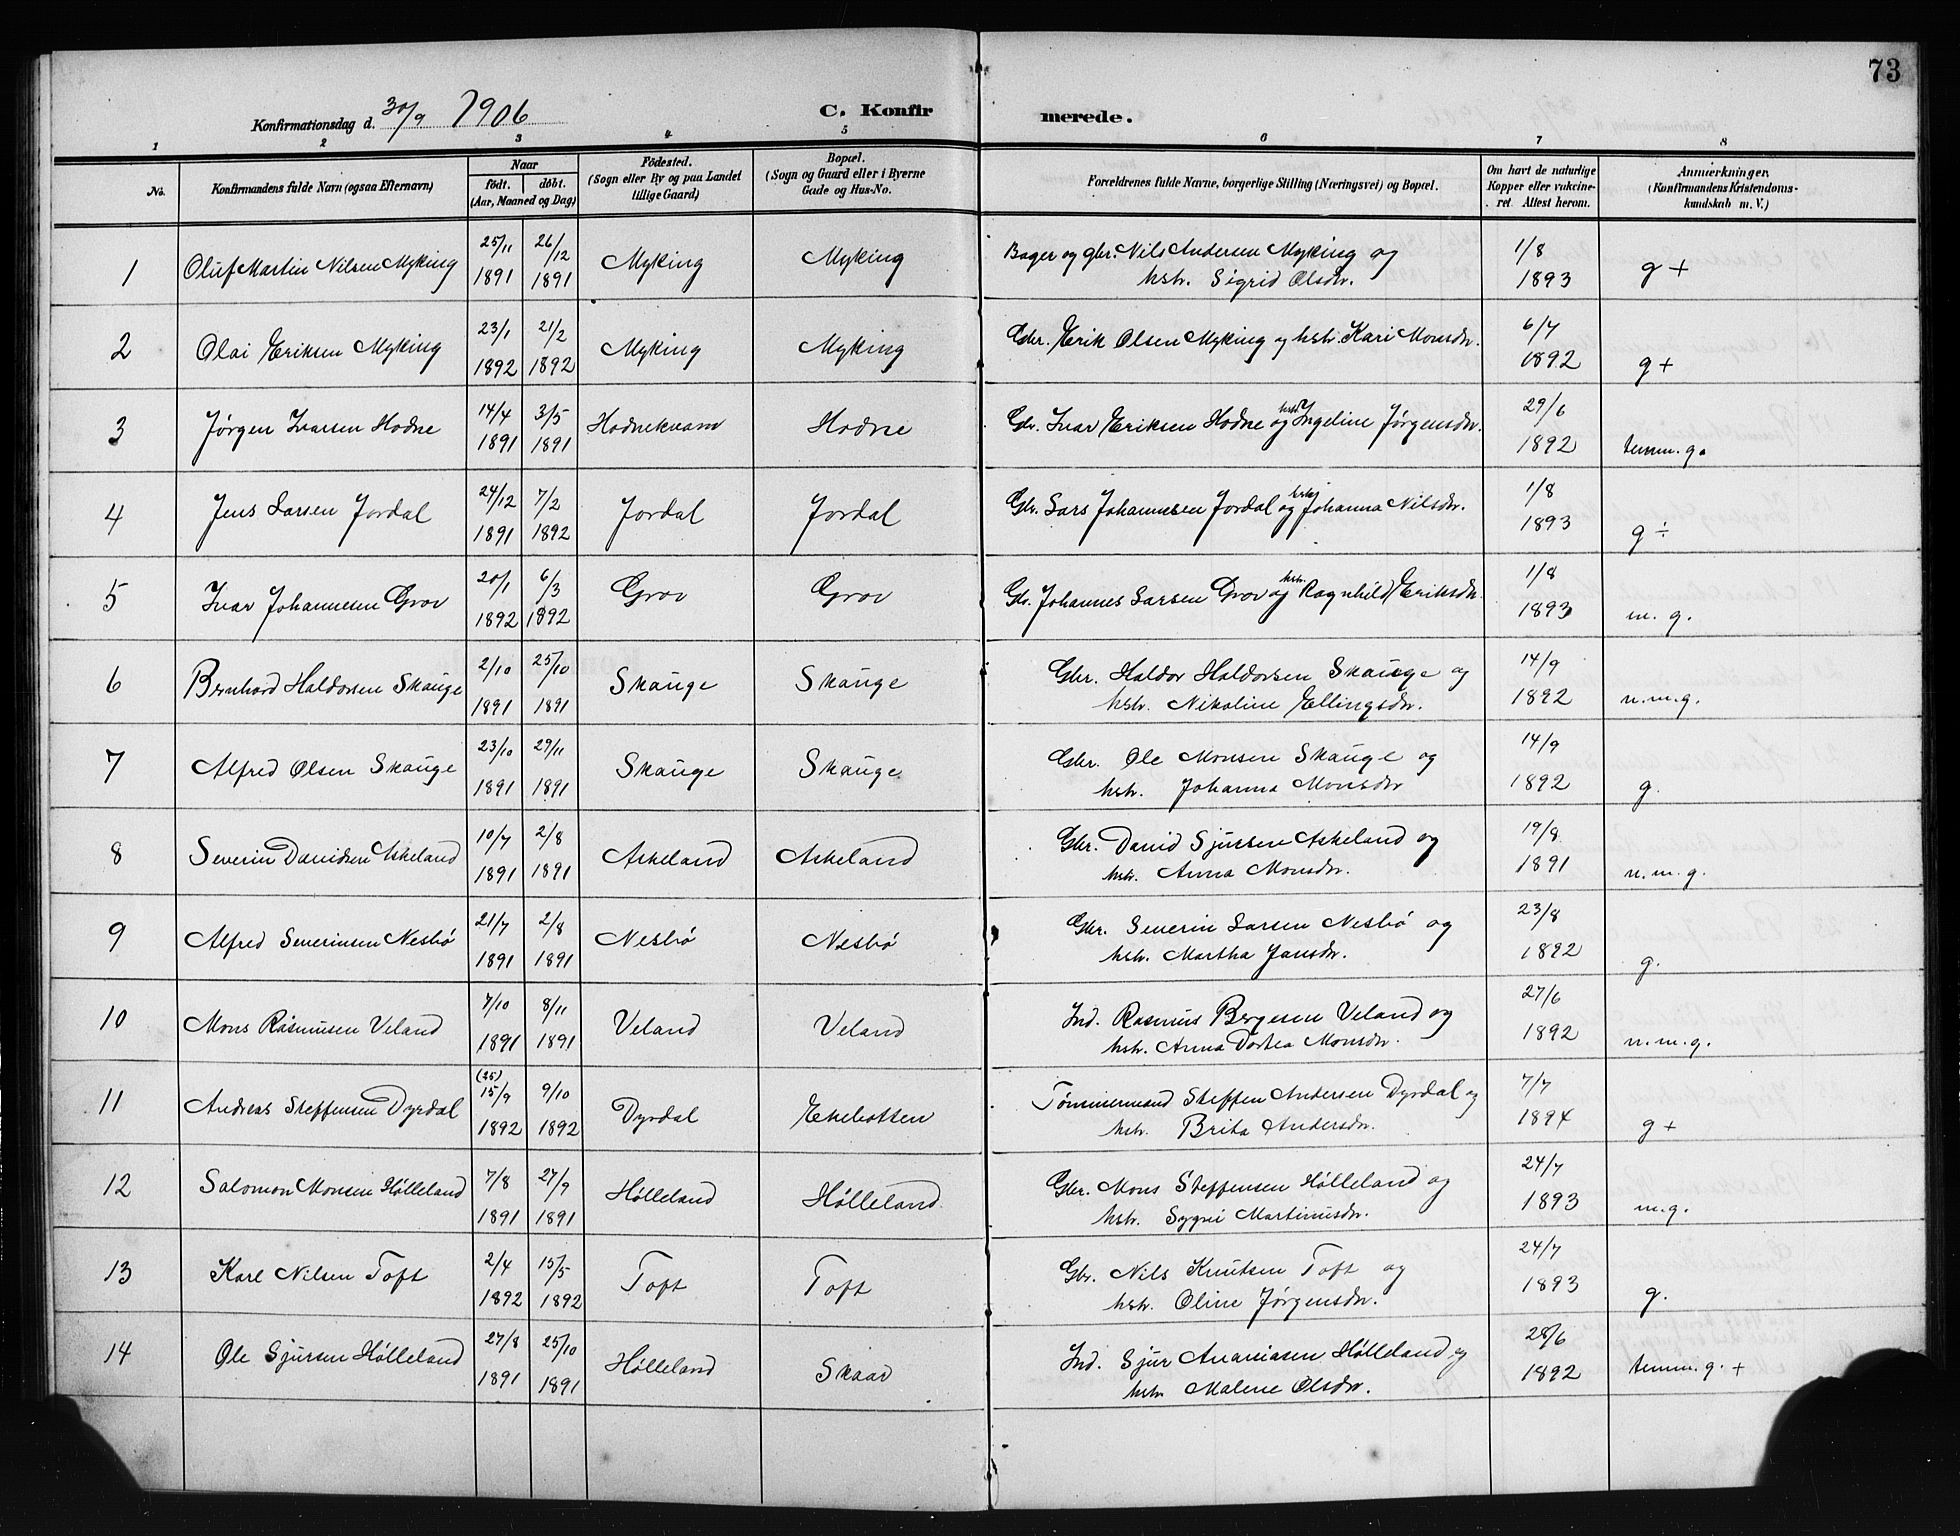 73
Konfirmationsdag d. 30/9 1906 C. Konfirmerede.
1 2 3 4 5 6 7 8
No. Konfirmandens fulde Navn (ogsaa Efternavn) Naar født. døbt. (Aar, Maaned og Dag) Fødested. (Sogn eller By og paa Landet tillige Gaard) Bopæl. (Sogn og Gaard eller i Byerne Gade og Hus-No. Forældrenes fulde Navne, borgerlige Stilling (Næringsvei) og Bopæl. Om havt de naturlige Kopper eller vakcineret. Attest herom. Anmærkninger. (Konfirmandens Kristendomskundskab m. V.)
1 Oluf Martin Nilsen Myking 25/11 1891 26/12 1891 Myking Myking Bager og gbr. Nils Andersen Myking og hstr. Sigrid Olsdr. 1/8 1893 g +
2 Olai Eriksen Myking 23/1 1892 21/2 1892 Myking Myking Gbr. Erik Olsen Myking og hstr. Kari Monsdr. 6/7 1892 g +
3 Jørgen Ivarsen Hodne 14/4 1891 3/5 1891 Hodnekvam Hodne Gbr. Ivar Eriksen Hodne og hstr. Ingeline Jørgensdr. 29/6 1892 temm. g.
4 Jens Larsen Jordal 24/12 1891 7/2 1892 Jordal Jordal Gbr. Lars Johannesen Jordal og Johanna Nilsdr. 1/8 1893 g ÷
5 Ivar Johannesen Grov 20/1 1892 6/3 1892 Grov Grov Gbr. Johannes Larsen Grov og hstr. Ragnhild Eriksdr. 1/8 1893 m. g.
6 Bernhard Haldorsen Skauge 2/10 1891 25/10 1891 Skauge Skauge Gbr. Haldor Haldorsen Skauge og hstr. Nikoline Ellingsdr. 14/9 1892 n. m. g.
7 Alfred Olsen Skauge 23/10 1891 29/11 1891 Skauge Skauge Gbr. Ole Monsen Skauge og hstr. Johanna Monsdr 14/9 1892 g.
8 Severin Davidsen Askeland 10/7 1891 2/8 1891 Askeland Askeland Gbr. David Sjursen Askeland og hstr. Anna Monsdr. 19/8 1891 n. m. g.
9 Alfred Severinsen Nesbø 21/7 1891 2/8 1891 Nesbø Nesbø Gbr. Severin Larsen Nesbø og hstr. Martha Jansdr. 23/8 1892 g.
10 Mons Rasmusen Veland 7/10 1891 8/11 1891 Veland Veland Ind. Rasmus Bergesen Veland og hstr. Anna Dortea Monsdr. 27/6 1892 n. m. g.
11 Andreas Steffensen Dyrdal (25) 15/9 1892 9/10 1892 Dyrdal Ekebotten Tømmermand Steffen Andersen Dyrdal og hstr. Brita Andersdr. 7/7 1894 g +
12 Salomon Monsen Hølleland 7/8 1891 27/9 1891 Hølleland Hølleland Gbr. Mons Steffensen Hølleland og hstr. Sygni Martinusdr. 24/7 1893 m. g.
13 Karl Nilsen Toft 2/4 1892 15/5 1892 Toft Toft Gbr. Nils Knutsen Toft og hstr. Oline Jørgensdr. 24/7 1893 g.
14 Ole Sjursen Hølleland 27/8 1891 25/10 1891 Hølleland Skaar Ind. Sjur Ananiasen Hølleland og hstr Malene Olsdr. 28/6 1892 temm. g. +